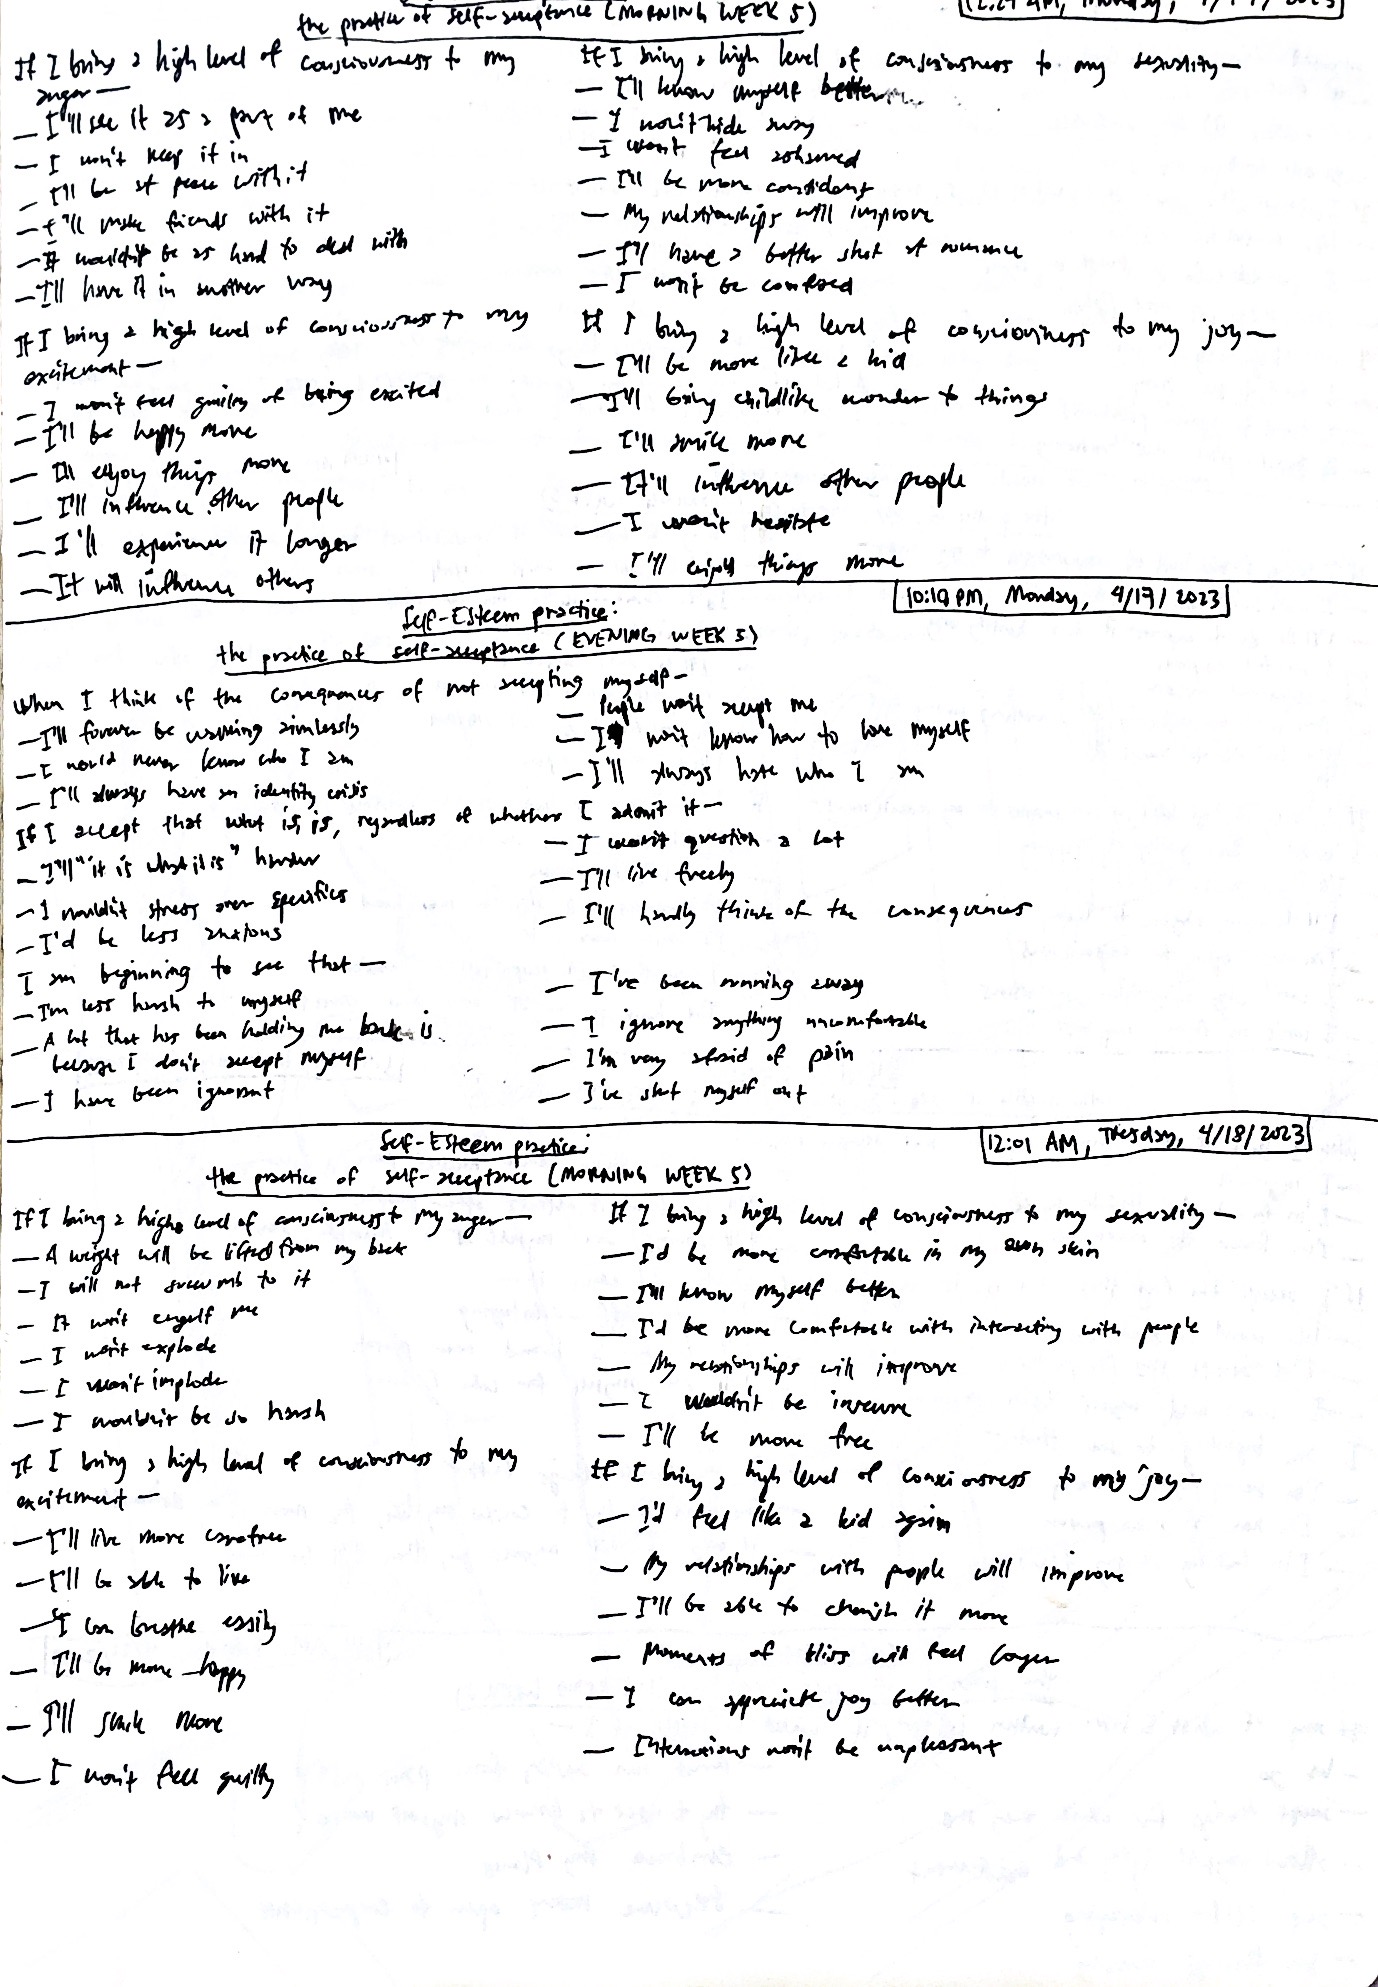 the practice of self-acceptance (MORNING WEEK 5)
If I bring a high level of consciousness to my
anger —
— I'll see it as a part of me
— I won't keep it in
— I'll be at peace with it
— I'll make friends with it
— It wouldn't be as hard to deal with
— I'll have it in another way
If I bring a high level of consciousness to my
excitement —
— I won't feel guilty of being excited
— I'll be happy more
— I'll enjoy things more
— I'll influence other people
— I'll experience it longer
— It will influence others
If I bring a high level of consciousness to my sexuality —
— I'll know myself better
— I won't hide away
— I won't feel ashamed
— I'll be more confident
— My relationships will improve
— I'll have a better shot at romance
— I won't be confused
If I bring a high level of consciousness to my joy —
— I'll be more like a kid
— I'll bring childlike wonder to things
— I'll smile more
— It'll influence other people
— I won't hesitate
— I'll enjoy things more
10:19 PM, Monday, 4/17/2023
Self-Esteem practice:
the practice of self-acceptance (EVENING WEEK 5)
When I think of the consequences of not accepting myself —
— I'll forever be walking aimlessly
— I would never know who I am
— I'll always have an identity crisis
— People won't accept me
— I won't know how to love myself
— I'll always hate who I am
If I accept that what is, is, regardless of whether I admit it —
— I'll "it is what it is" harder
— I wouldn't stress over specifics
— I'd be less anxious
— I won't question a lot
— I'll live freely
— I'll hardly think of the consequences
I am beginning to see that —
— I'm less harsh to myself
— A lot that has been holding me back is
because I don't accept myself
— I have been ignorant
— I've been running away
— I ignore anything uncomfortable
— I'm very afraid of pain
— I've shut myself out
12:01 AM, Tuesday, 4/18/2023
Self-Esteem practice:
the practice of self-acceptance (MORNING WEEK 5)
If I bring a high level of consciousness to my anger —
— A weight will be lifted from my back
— I will not succumb to it
— It won't engulf me
— I won't explode
— I won't implode
— I wouldn't be so harsh
If I bring a high level of consciousness to my
excitement —
— I'll live more carefree
— I'll be able to live
— I can breathe easily
— I'll be more happy
— I'll smile more
— I won't feel guilty
If I bring a high level of consciousness to my sexuality —
— I'd be more comfortable in my own skin
— I'll know myself better
— I'd be more comfortable with interacting with people
— My relationships will improve
— I wouldn't be insecure
— I'll be more free
If I bring a high level of consciousness to my joy —
— I'd feel like a kid again
— My relationships with people will improve
— I'll be able to cherish it more
— Moments of bliss will feel longer
— I can appreciate joy better
— Interactions won't be unpleasant